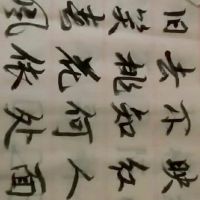 映红人面
不知何处
去桃花依
旧笑春風